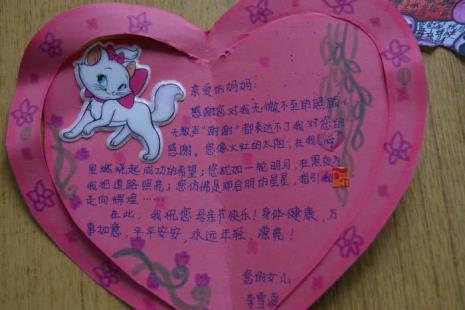 亲爱的妈妈:
感谢您对我无微不至的照顾,
无数声“谢谢”都表达不了我对您的
感谢。您像火红的太阳,在我心
里燃起成功的希望;您犹如一轮明月,在黑夜为
我把道路照亮;您仿佛是那启明的星星,指引我
走向辉煌……
在此,我祝您母亲节快乐!身体健康,万
事如意,平平安安,永远年轻,漂亮!
您的女儿
李雪